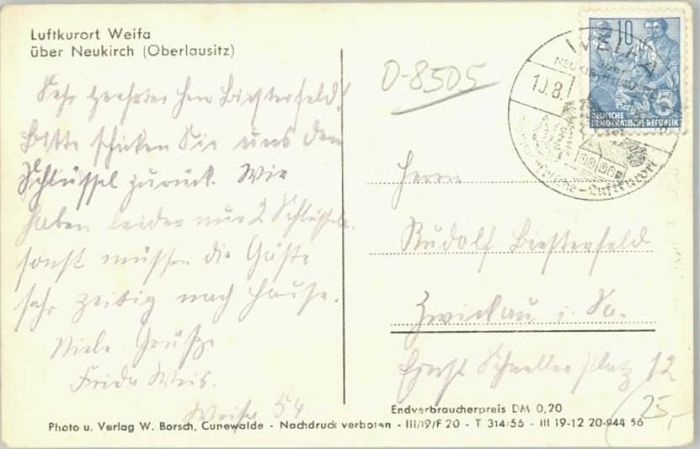 Luftkurort Weifa
über Neukirch (Oberlausitz)
Sehr geehrter Herr Biesterfeld!
Bitte schicken Sie uns den
Schlüssel zurück. Wir
haben leider nur 2 Schlüssel,
sonst müssen die Gäste
sehr zeitig nach Hause.
Viele Grüße
Frida Weis.
Weifa 54
D-8505
WEIFA
10.8.
10
5
DEUTSCHE
DEMOKRATISCHE REPUBLIK
Luftkurort
Herrn
Rudolf Biesterfeld
Zwickau i. Sa.
Ernst Schneller Platz 12
25,-
Endverbraucherpreis DM 0,20
Photo u. Verlag W. Borsch, Cunewalde - Nachdruck verboten - III/19/F 20 - T 314/56 - III 19-12 20-944 56